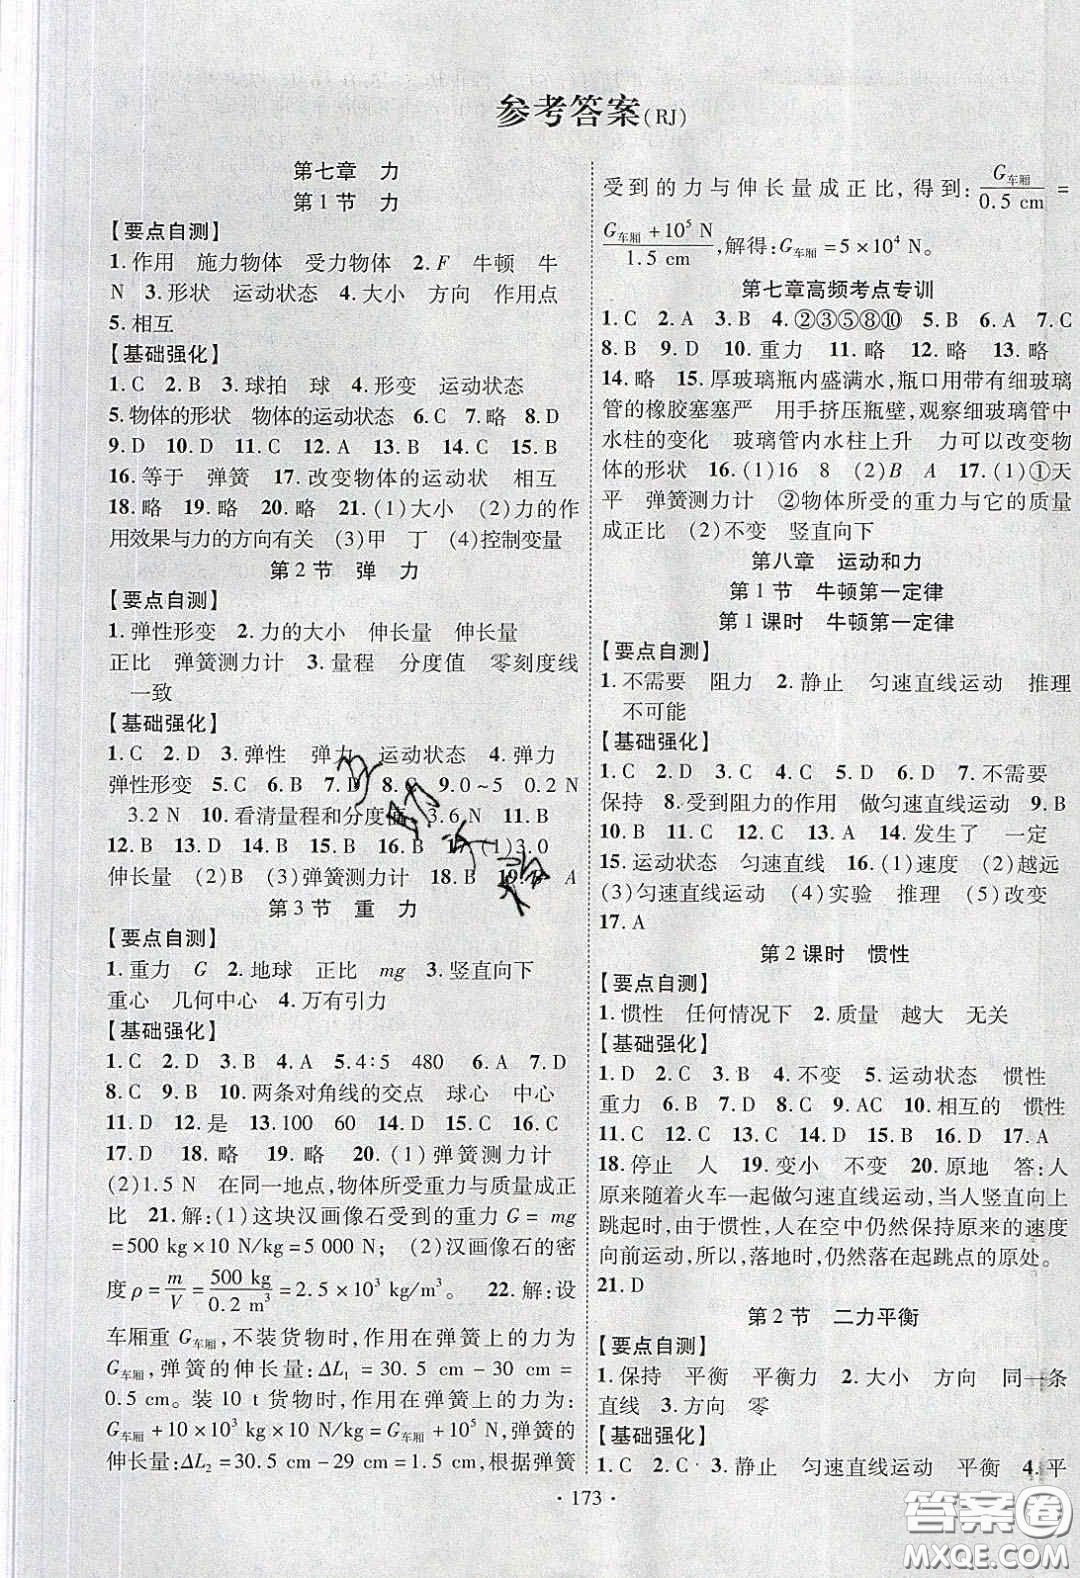 参考答案(RJ)
第七章 力
第1节 力
【要点自测】
1.作用 施力物体 受力物体 2.F 牛顿 牛
N 3.形状 运动状态 4.大小 方向 作用点
5.相互
【基础强化】
1.C 2.B 3.球拍 球 4.形变 运动状态
5.物体的形状 物体的运动状态 6.C 7.略 8.D
9.D 10.D 11.C 12.D 13.C 14.C 15.B
16.等于 弹簧 17.改变物体的运动状 相互
18.略 19.略 20.略 21.(1)大小 (2)力的作
用效果与力的方向有关 (3)甲 丁 (4)控制变量
第2节 弹 力
【要点自测】
1.弹性形变 2.力的大小 伸长量 伸长量
正比 弹簧测力计 3.量程 分度值 零刻度线
一致
【基础强化】
1.C 2.D 3.弹性 弹力 运动状态 4.弹力
弹性形变 5.C 6.B 7.D 8.C 9.0~5 0.2 N
3.2 N 10.看清量程和分度值 3.6 N 11.B
12.B 13.D 14.C 15.A 16.B 17.(1)3.0
伸长量 (2)B (3)弹簧测力计 18.B 19. A
第3节 重 力
【要点自测】
1.重力 G 2.地球 正比 mg 3.竖直向下
重心 几何中心 4.万有引力
【基础强化】
1.C 2.D 3.B 4.A 5.4∶5 480 6.A 7.D
8.C 9.B 10.两条对角线的交点 球心 中心
11.D 12.是 13.100 60 14.D 15.C 16.C
17.D 18.略 19.略 20.(1)弹簧测力计
(2)1.5 N 在同一地点,物体所受重力与质量成正
比 21.解:(1)这块汉画像石受到的重力 G = mg
=500 kg×10 N/kg=5 000 N; (2)汉画像石的密
度 ρ=m/V=500 kg/0.2 m³=2.5×10³ kg/m³。 22.解:设
车厢重 G车厢,不装货物时,作用在弹簧上的力为
G车厢,弹簧的伸长量:ΔL₁=30.5 cm-30 cm=
0.5 cm。装 10 t 货物时,作用在弹簧上的力为:
G车厢+10×10³ kg×10 N/kg=G车厢+10⁵ N,弹簧的
伸长量:ΔL₂=30.5 cm-29 cm=1.5 cm,根据弹簧
受到的力与伸长量成正比,得到:G车厢/0.5 cm=
(G车厢+10⁵ N)/1.5 cm,解得:G车厢=5×10⁴ N。
第七章高频考点专训
1.C 2.A 3.B 4.②③⑤⑧⑩ 5.B 6.A 7.C
8.B 9.D 10.重力 11.略 12.略 13.略
14.略 15.厚玻璃瓶内盛满水,瓶口用带有细玻璃
管的橡胶塞塞严 用手挤压瓶壁,观察细玻璃管中
水柱的变化 玻璃管内水柱上升 力可以改变物
体的形状 16.(1)16 8 (2)B A 17.(1)①天
平 弹簧测力计 ②物体所受的重力与它的质量
成正比 (2)不变 竖直向下
第八章 运动和力
第1节 牛顿第一定律
第1课时 牛顿第一定律
【要点自测】
1.不需要 阻力 2.静止 匀速直线运动 推理
不可能
【基础强化】
1.C 2.D 3.C 4.D 5.A 6.D 7.不需要
保持 8.受到阻力的作用 做匀速直线运动 9.B
10.B 11.A 12.C 13.A 14.发生了 一定
15.运动状态 匀速直线 16.(1)速度 (2)越远
(3)匀速直线运动 (4)实验 推理 (5)改变
17.A
第2课时 惯性
【要点自测】
1.惯性 任何情况下 2.质量 越大 无关
【基础强化】
1.D 2.C 3.A 4.不变 5.运动状态 惯性
重力 6.B 7.D 8.C 9.AC 10.相互的 惯性
11.B 12.B 13.A 14.D 15.A 16.B 17.A
18.停止 人 19.变小 不变 20.原地 答:人
原来随着火车一起做匀速直线运动,当人竖直向上
跳起时,由于惯性,人在空中仍然保持原来的速度
向前运动,所以,落地时,仍然落在起跳点的原处。
21.D
第2节 二力平衡
【要点自测】
1.保持 平衡 平衡力 2.大小 方向 同一条
直线 3.方向 零
【基础强化】
1.C 2.C 3.静止 匀速直线运动 平衡 4.平
· 173 ·
答案圈
MXQE.COM